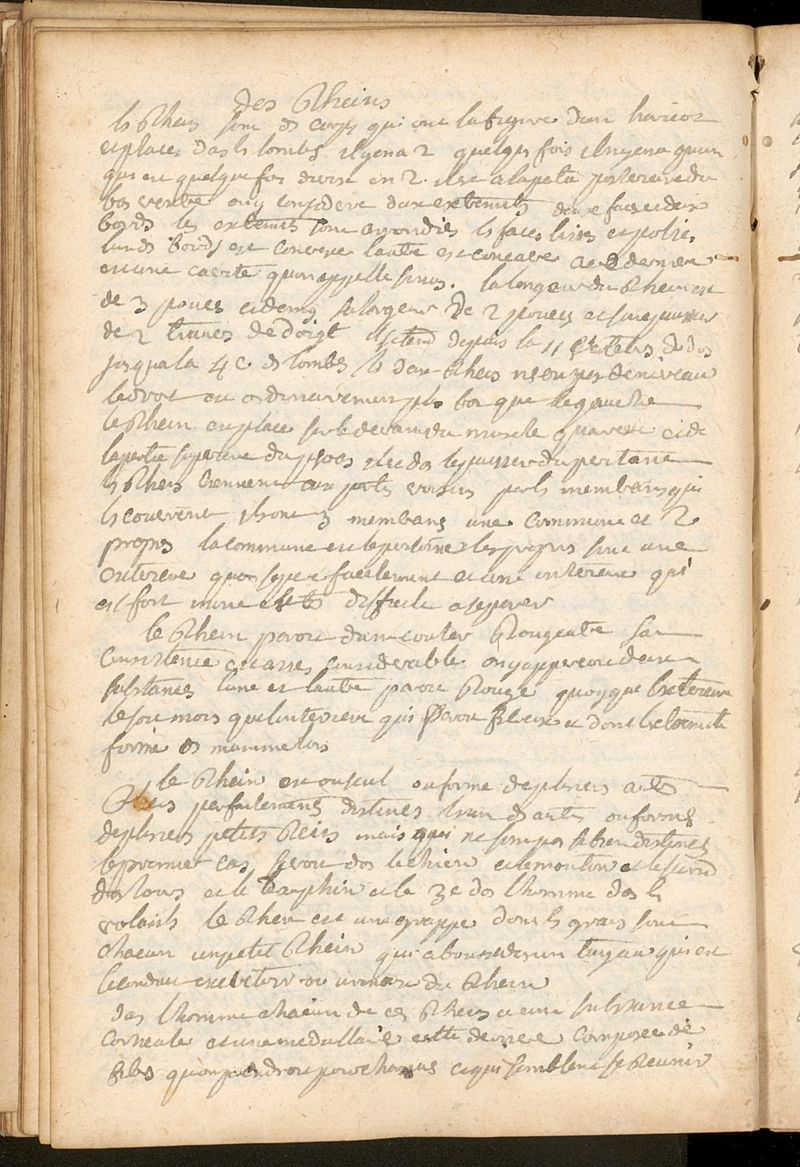 des Rheins
les Rheins sont des corps qui ont la figure dun haricot
est place dans les lombes il y en a 2 quelques fois il ny en a quun
qui est quelque fois divise en 2. il est a la partie posterieure du
bas ventre on y considere deux extremites deux faces deux
bords les extremites sont arrondies les faces lisses et polies
lun des bords est convexe lautre est concave a ce dernier
est une cavite quon appelle sinus. la longueur du Rhein est
de 3 pouces et demy sa largeur de 2 pouces et son epaisseur
de 2 travers de doigt il setend depuis la 11 vertebre du dos
jusqua la 4e des lombes les deux Rheins de niveau
le droit est ordinairement plus bas que le gauche
le Rhein est place sur le devant du muscle quarré et de
la partie superieure du psoas
les Rheins tiennent aux parties voisines par les membranes qui
les couvrent ils ont 3 membranes une commune et 2
propres la commune est le peritoine les propres sont une
exterieure quon separe facilement et une interieure qui
est fort mince et tres difficile a separer
le Rhein paroit dune couleur Rougeatre sa
consistence est assez considerable on y appercoit deux
substances lune et lautre paroit Rouge quoyque lexterieure
le soit moins que linterieure qui paroit et dont lextremite
forme des mammelons
le Rhein est ou seul ou forme de plusieurs autres
Rheins parfaitement distincts lun des autres ou forme
de plusieurs petits Reins mais qui ne sont pas si bien distincts
le premier cas se voit dans le chien et le mouton et le second
dans lours et le dauphin et le 3e dans lhomme dans les
volatils le Rhein est une grappe dont les grains sont
chacun un petit Rhein qui aboutit dans un tuyau qui est
le conduit excretoire ou urinaire du Rhein
dans lhomme chacun de ces Rheins a une substance
corticale et une medullaire cette derniere composee de
fibres quon prendroit pour et qui semblent se Reunir